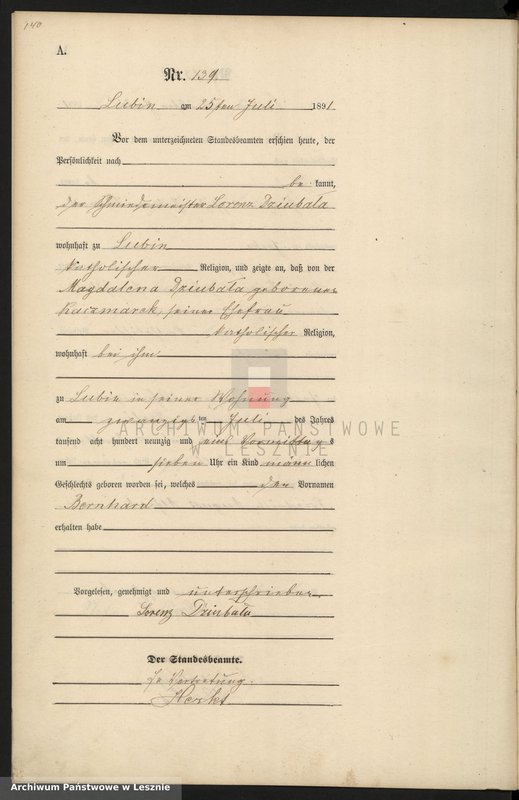 140
A.
Nr. 139.
Lubin am 25ten Juli 1891
Vor dem unterzeichneten Standesbeamten erschien heute, der
Persönlichkeit nach
be kannt,
der Schmiedemeister Lorenz Dziubała
wohnhaft zu Lubin
katholischer Religion, und zeigte an, daß von der
Magdalena Dziubała geborenen
Kaczmarek, seiner Ehefrau
katholischer Religion,
wohnhaft bei ihm
zu Lubin in seiner Wohnung
am zwanzigsten Juli des Jahres
tausend acht hundert neunzig und eins Vormittags
um sieben Uhr ein Kind männlichen
Geschlechts geboren worden sei, welches den Vornamen
Bernhard
erhalten habe
Vorgelesen, genehmigt und unterschrieben
Lorenz Dziubała
Der Standesbeamte.
In Vertretung.
ARCHIWUM PAŃSTWOWE
W LESZNIE
Archiwum Państwowe w Lesznie